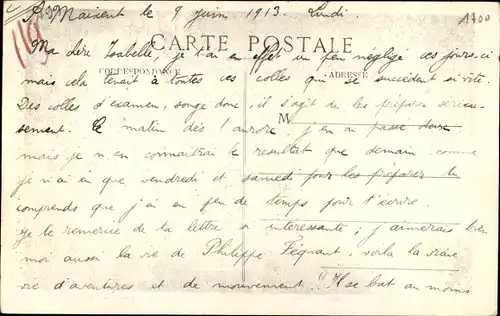 St Maixent le 9 Juin 1913. Lundi.
1700
119
Ma chère Isabelle, je t'ai en effet un peu négligé ces jours-ci
CARTE POSTALE
mais cela tenait à toutes ces colles qui se succèdent si vite.
CORRESPONDANCE
ADRESSE
Des colles d'examen, songe donc, il s'agit de les préparer sérieu-
sement. Ce matin dès l'aurore j'en ai passé deux
M
mais je n'en connaîtrai le résultat que demain comme
je n'ai eu que vendredi et samedi pour les préparer tu
comprends que j'ai eu peu de temps pour t'écrire.
Je te remercie de ta lettre si intéressante ; j'aimerais bien
moi aussi la vie de Philippe Féquant, voilà la vraie
vie d'aventures et de mouvement. "Il se bat au moins